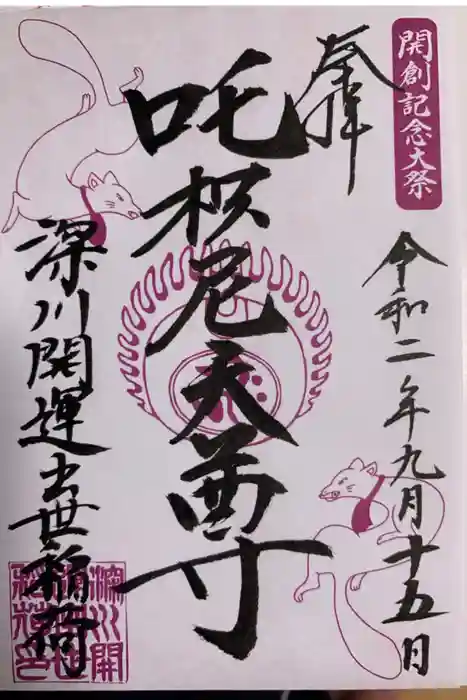 開創記念大祭
令和二年九月十五日
奉拝
吒枳尼天尊
深川開運出世稲荷